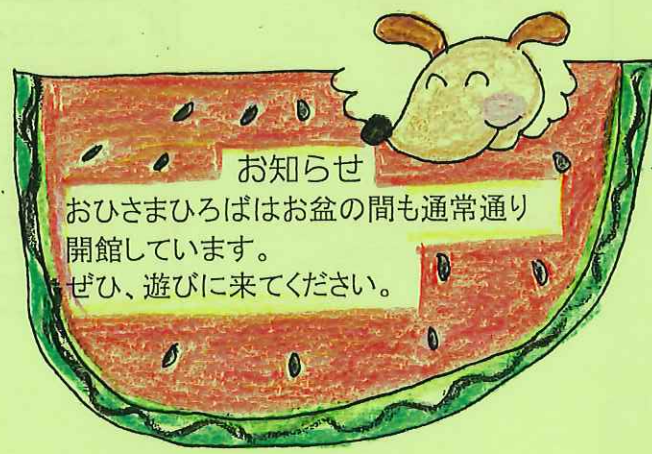 お知らせ
おひさまひろばはお盆の間も通常通り
開館しています。
ぜひ、遊びに来てください。